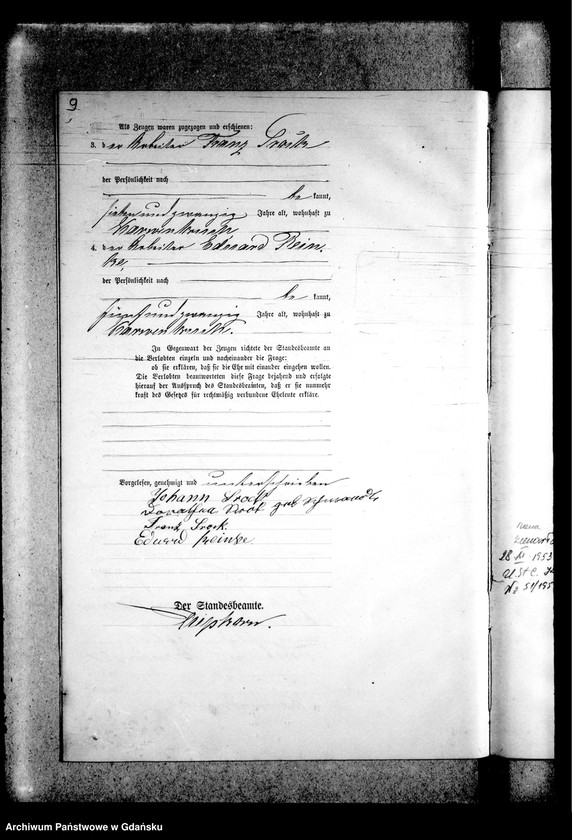 9
Als Zeugen waren zugezogen und erschienen:
3. der Arbeiter Franz
der Persönlichkeit nach
be kannt,
siebenundzwanzig Jahre alt, wohnhaft zu
4. der Arbeiter Eduard Rein-
ke,
der Persönlichkeit nach
be kannt,
fünfundzwanzig Jahre alt, wohnhaft zu
In Gegenwart der Zeugen richtete der Standesbeamte an
die Verlobten einzeln und nacheinander die Frage:
ob sie erklären, daß sie die Ehe mit einander eingehen wollen.
Die Verlobten beantworteten diese Frage bejahend und erfolgte
hierauf der Ausspruch des Standesbeamten, daß er sie nunmehr
kraft des Gesetzes für rechtmäßig verbundene Eheleute erkläre.
Vorgelesen, genehmigt und unterschrieben
Johann
geb
Franz
Eduard Reinke
Der Standesbeamte.
28 XI 1953
U.S.C.
Archiwum Państwowe w Gdańsku